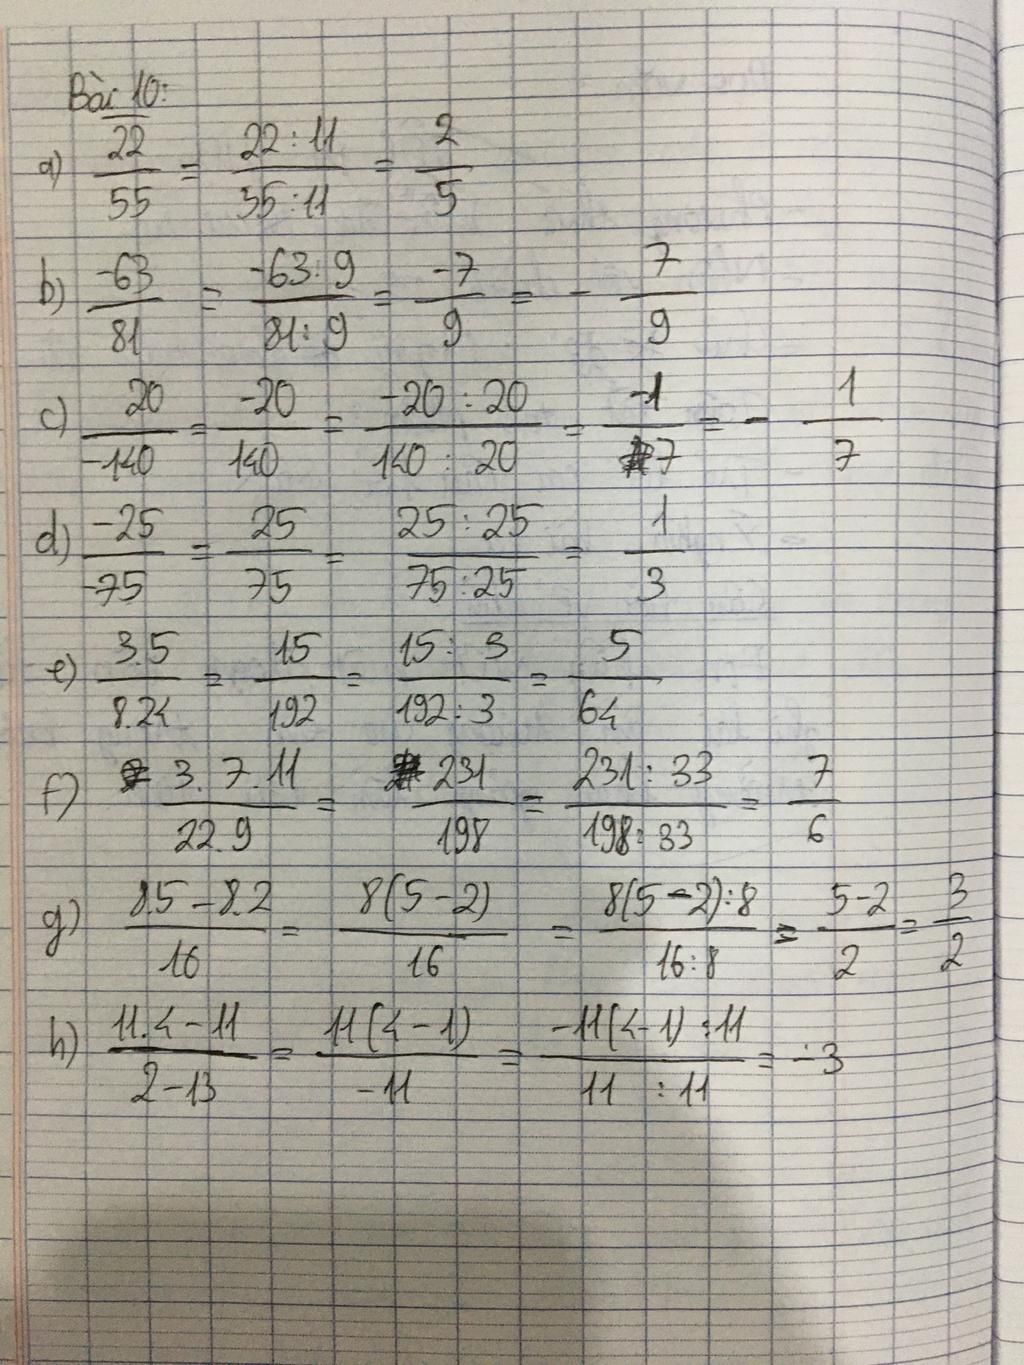 Bài 10:
a) 22/55 = 22:11/35:11 = 2/5
b) -63/81 = -63:9/81:9 = -7/9 = - 7/9
c) 20/-140 = -20/140 = -20:20/140:20 = -1/7 = - 1/7
d) -25/-75 = 25/75 = 25:25/75:25 = 1/3
e) 3.5/8.24 = 15/192 = 15:3/192:3 = 5/64
f) 3.7.11/22.9 = 231/198 = 231:33/198:33 = 7/6
g) 8.5-8.2/16 = 8(5-2)/16 = 8(5-2):8/16:8 = 5-2/2 = 3/2
h) 11.4-11/2-13 = 11(4-1)/-11 = -11(4-1):11/11:11 = -3